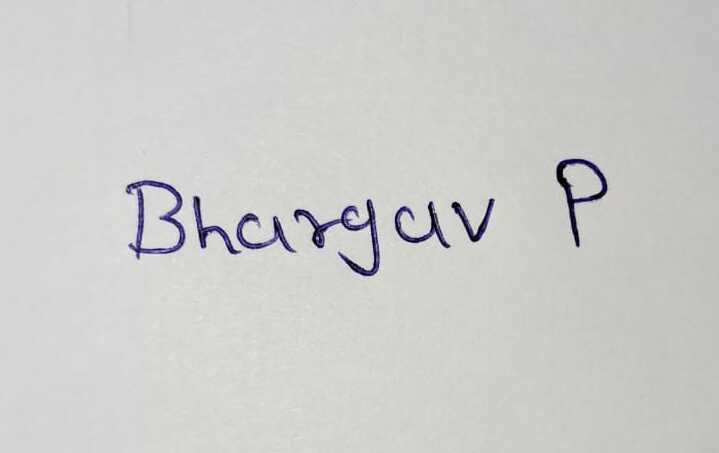 Bhargav P